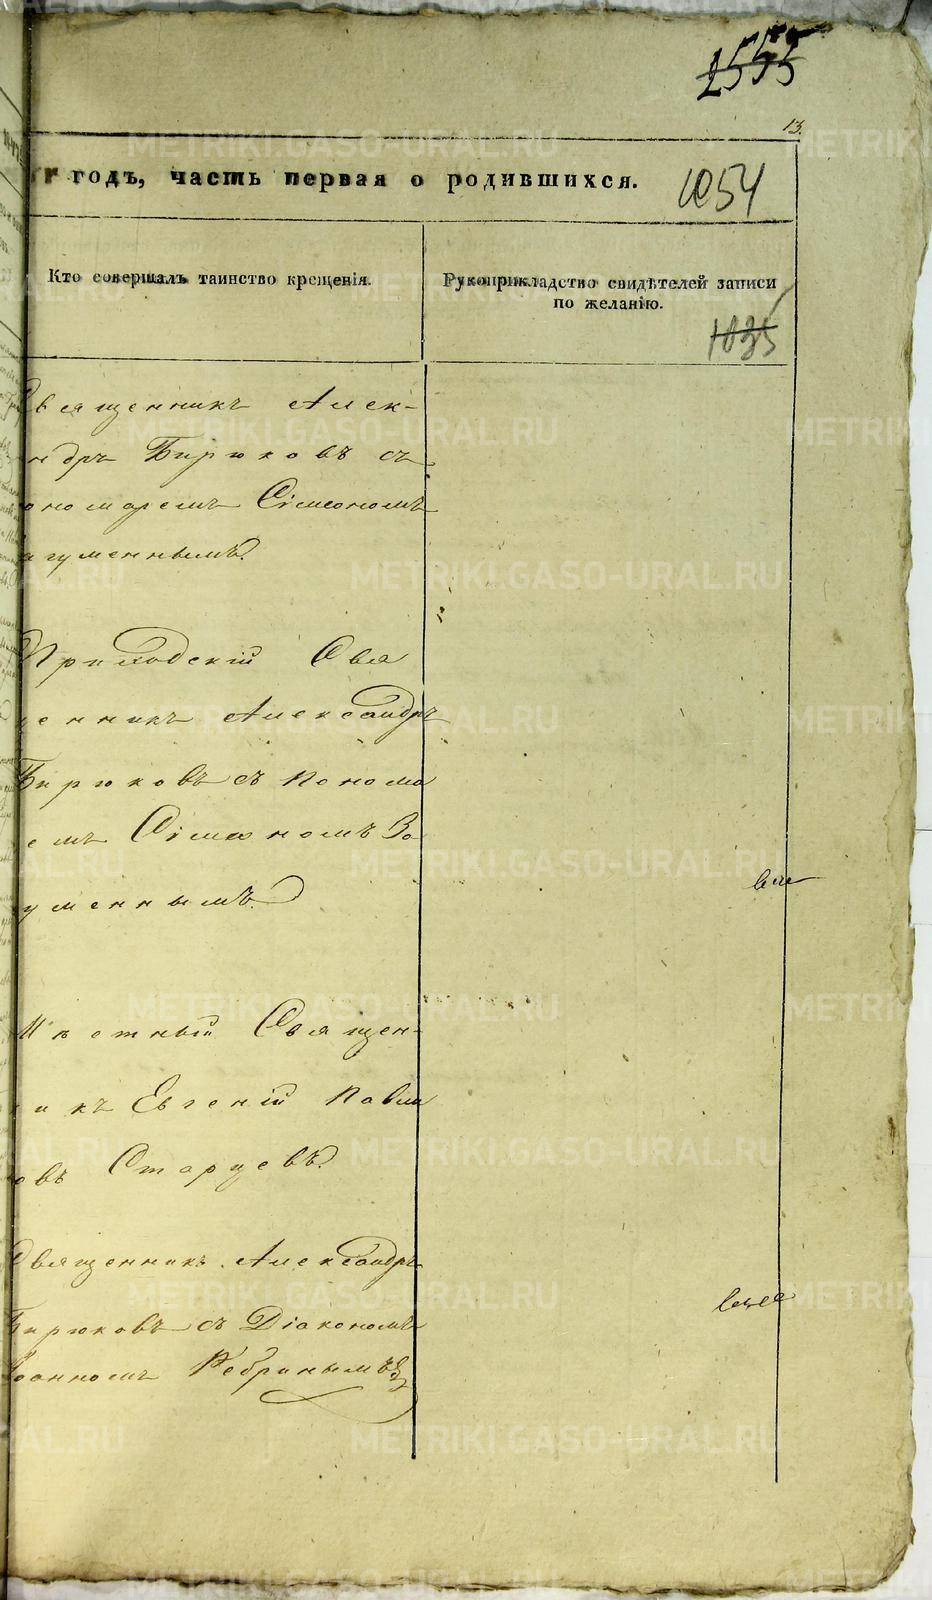 2555
13.
годъ, часть первая о родившихся.
1054
Кто совершалъ таинство крещенія.
Рукоприкладство свидѣтелей записи
по желанію.
1035
Священникъ Алек-
ндръ Бирюковъ съ
ономаремъ Сімеономъ
агуменнымъ.
Приходскій Свя
щенникъ Александръ
Бирюковъ съ Понома
емъ Сімеономъ За
уменнымъ.
Мѣстный Священ-
никъ Евгеній Павло
овъ Старцевъ.
Священникъ Александръ
Бирюковъ съ Діакономъ
Іоанномъ Ребринымъ
METRIKI.GASO-URAL.RU